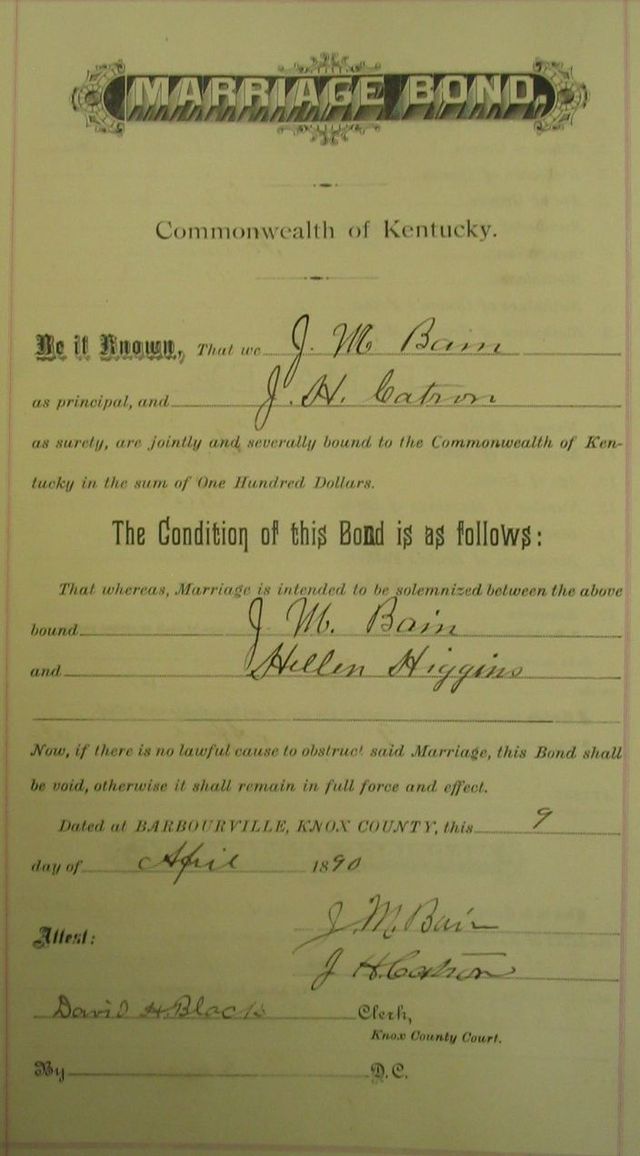 MARRIAGE BOND.
Commonwealth of Kentucky.
Be it Known, That we J. M Bain
as principal, and J. H. Catron
as surety, are jointly and severally bound to the Commonwealth of Ken-
tucky in the sum of One Hundred Dollars.
The Condition of this Bond is as follows:
That whereas, Marriage is intended to be solemnized between the above
bound J M. Bain
and Hellen Higgins
Now, if there is no lawful cause to obstruct said Marriage, this Bond shall
be void, otherwise it shall remain in full force and effect.
Dated at BARBOURVILLE, KNOX COUNTY, this 9
day of April 1890
J. M. Bain
Attest:
J H Catron
David H. Black Clerk,
Knox County Court.
By D.C.